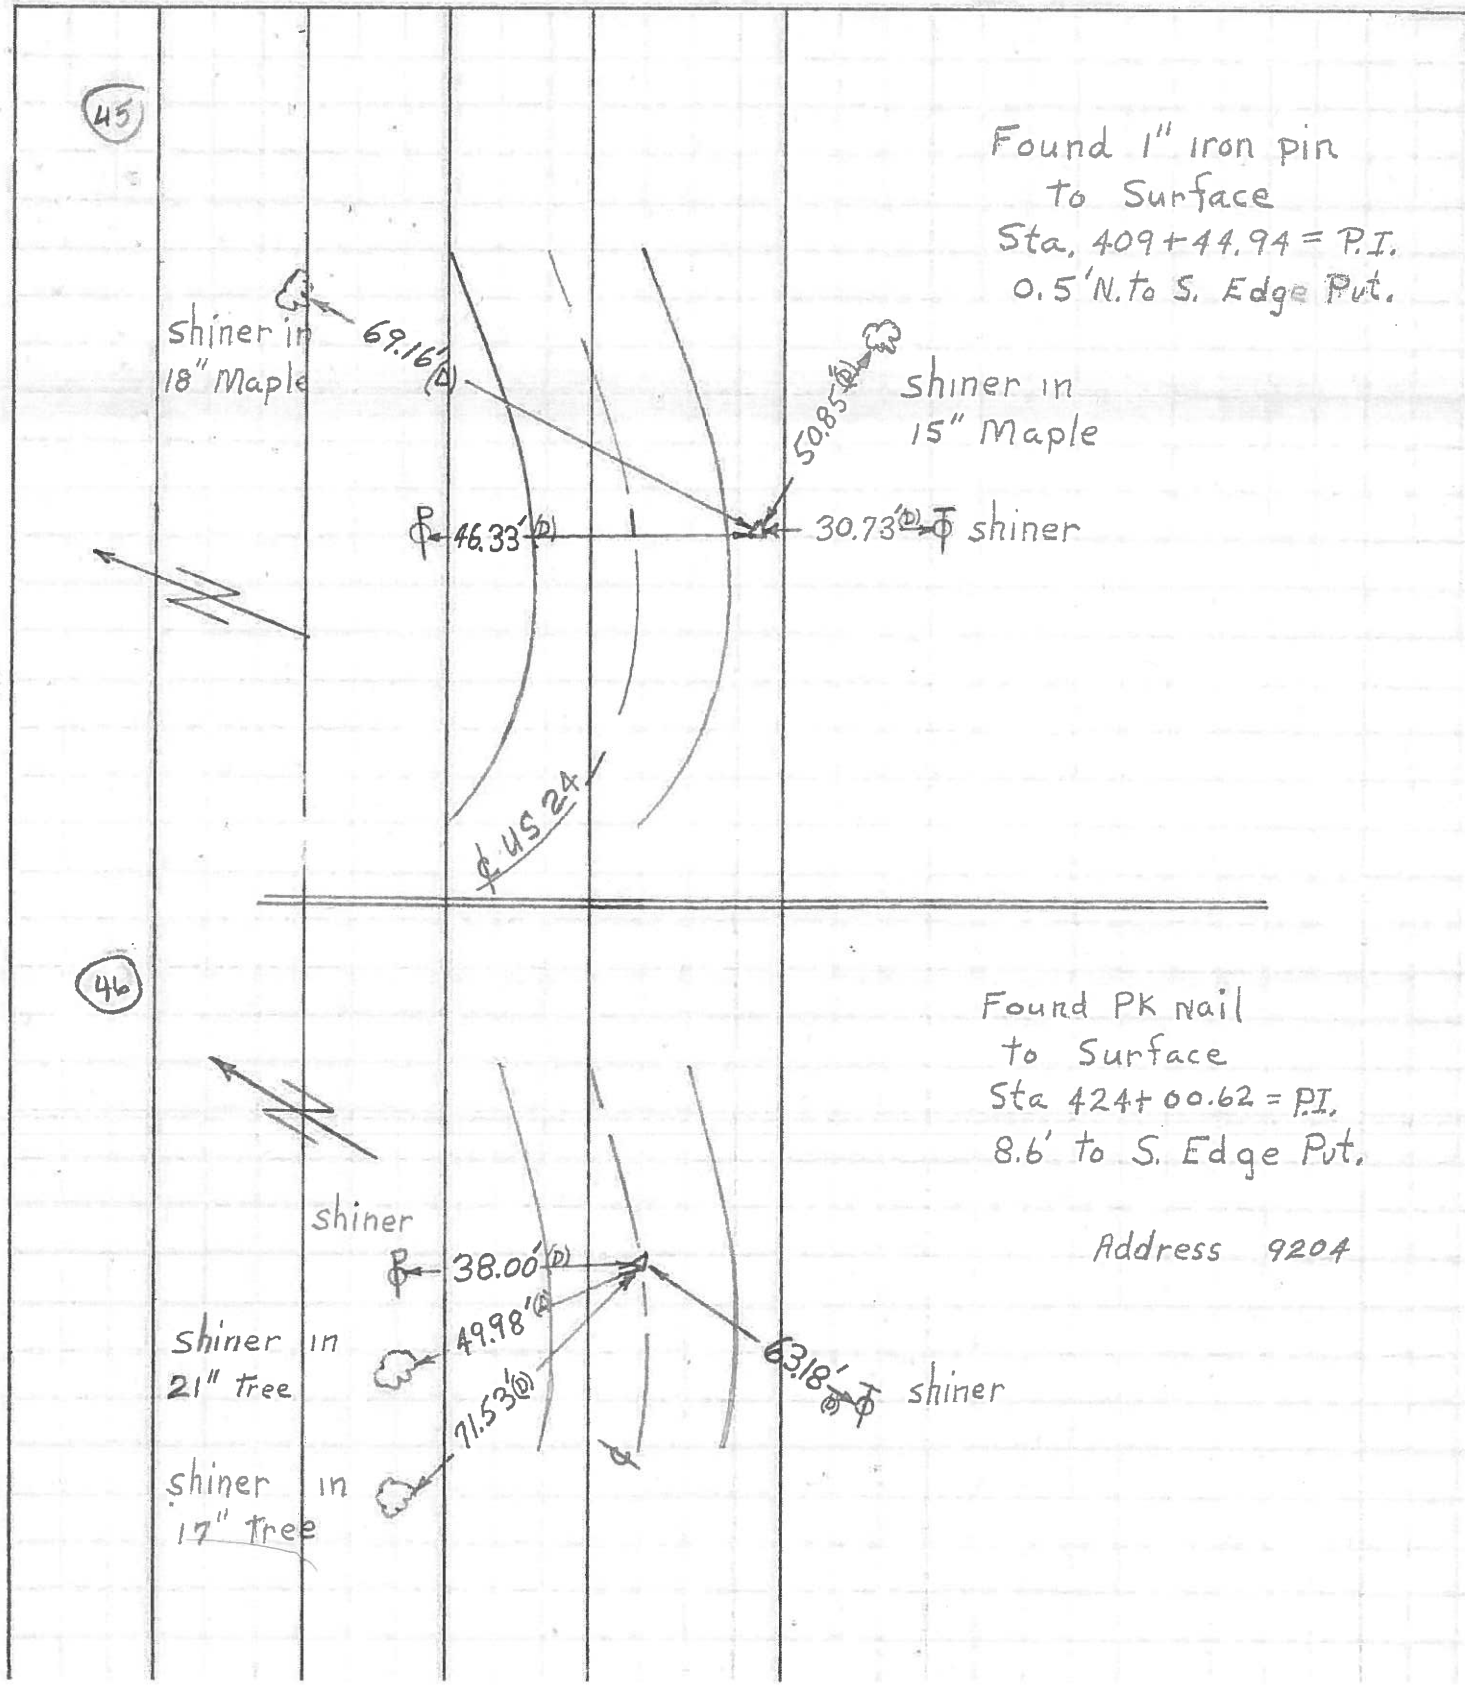 45
Found 1" iron pin
to Surface
Sta. 409+44.94 = P.I.
0.5' N. to S. Edge Pvt.
shiner in
18" Maple
69.16' (D)
50.85' (D)
shiner in
15" Maple
46.33' (D)
30.73' (D)
shiner
℄ US 24
46
Found PK Nail
to Surface
Sta 424+00.62 = P.I.
8.6' to S. Edge Pvt.
Address 9204
shiner
38.00' (D)
49.98' (D)
shiner in
21" Tree
71.53' (D)
63.18' (D)
shiner
shiner in
17" Tree